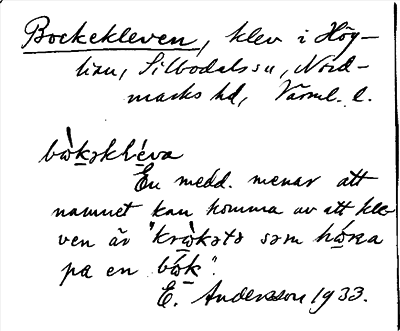 Bockekleven, klev i Hög-
lian, Silbodals sn, Nord-
marks hd, Värml. l.
bὼkəkléva
En medd. menar att
namnet kan komma av att klev
ven är "krὼkətə səm hώṇa
pa en bώk".
E. Andersson 1933.